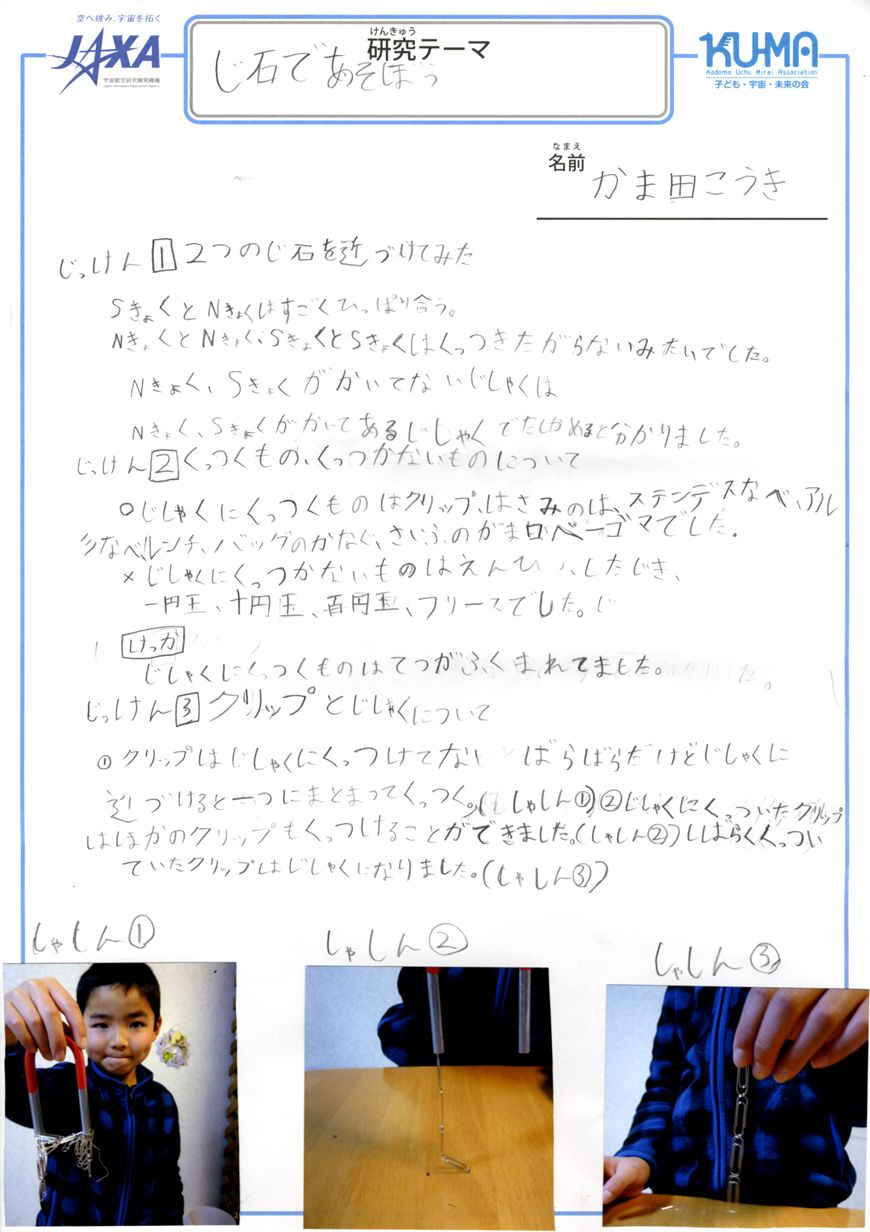 空へ挑み、宇宙を拓く
JAXA
宇宙航空研究開発機構
Japan Aerospace Exploration Agency
けんきゅう
研究テーマ
じ石であそぼう
KU-MA
Kodomo Uchu Mirai Association
子ども・宇宙・未来の会
なまえ
名前
かま田こうき
じっけん1 2つのじ石を近づけてみた
SきょくとNきょくはすごくひっぱり合う。
NきょくとNきょく、SきょくとSきょくはくっつきたがらないみたいでした。
Nきょく、Sきょくがかいてないじしゃくは
Nきょく、Sきょくがかいてあるじしゃくでたしかめると分かりました。
じっけん2くっつくもの、くっつかないものについて
○じしゃくにくっつくものはクリップ、はさみのは、ステンデスなべ、アル
ミなべ、レンチ、バッグのかなぐ、さいふのがま口ベーゴマでした.
×じしゃくにくっつかないものはえんぴつ、したじき、
一円玉、十円玉、百円玉、フリースでした。
けっか
じしゃくにくっつくものはてつがふくまれてました。
じっけん3クリップとじしゃくについて
①クリップはじしゃくにくっつけてない ばらばらだけどじしゃくに
近づけると一つにまとまってくっつく。(しゃしん①)②じしゃくにくっついたクリップ
はほかのクリップもくっつけることができました。(しゃしん②)しばらくくっつい
ていたクリップはじしゃくになりました。(しゃしん③)
しゃしん①
しゃしん②
しゃしん③